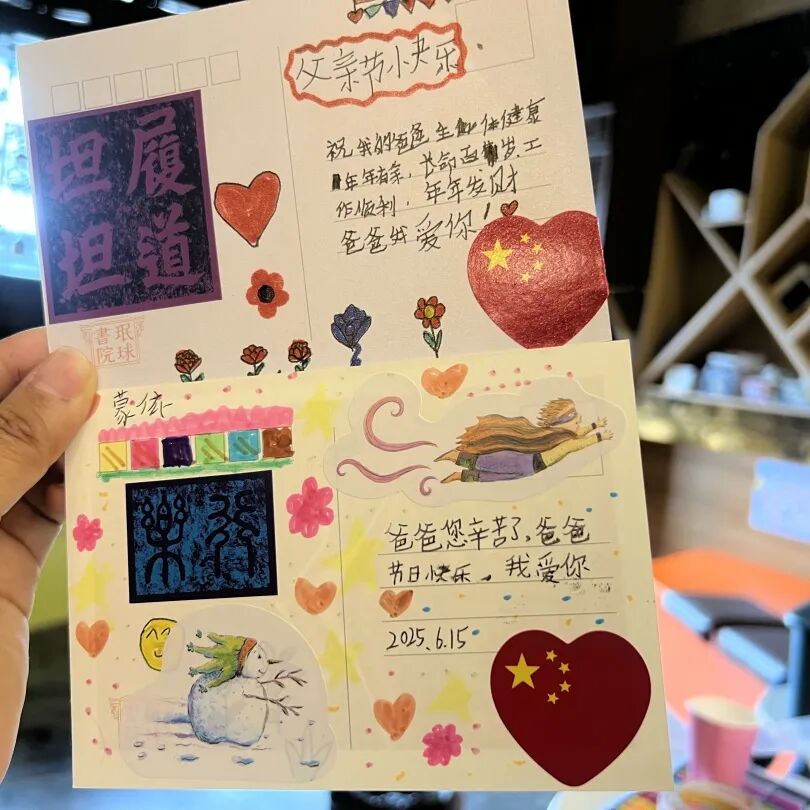 父亲节小快乐
履道
坦坦
祝我的爸爸身体健康
年年有余，长命百岁，工
作顺利，年年发财
爸爸我爱你！
珉球
書院
蒙依
爸爸您辛苦了，爸爸
节日快乐，我爱你
2025.6.15